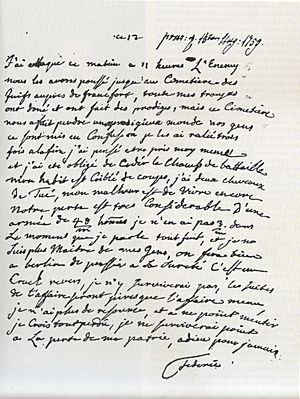 ce 12
J'ai attaqué ce matin a 11 heures l'Enemy
nous les avons poussé jusqu'au Cimetiére des
Juifs aupres de francfort toute mes troupes
ont doné et ont fait des prodiges mais ce Cimetiére
nous a fait perdre un prodigieux monde nos gens
ce sont mis en Confusion je les ai raliés trois
fois alafin j'ai pensé etre pris moy meme
et j'ai eté obligé de Cedér le Champ de bataille
mon habit est de coups, j'ai deux chevaux
de Tué, mon malheur est de Vivre encore
Notre perte est tres Considerable D'une
armée de 48 m homes je n'en ai pas 3 m. Dans
Le moment que je parle tout fuit, et je ne
suis plus Maitre de mes Gens, on fera bien
a berlin de pensser a Sa Sureté C'est un
Cruel revers, je n'y survivrai pas, les suites
de l'affaire seront pires que l'affaire meme
je n'ai plus de resource, et a ne point mentir
je Crois tout perdu, je ne surviverai point
a La perte de ma patrie, adieu pour jamais
Federic